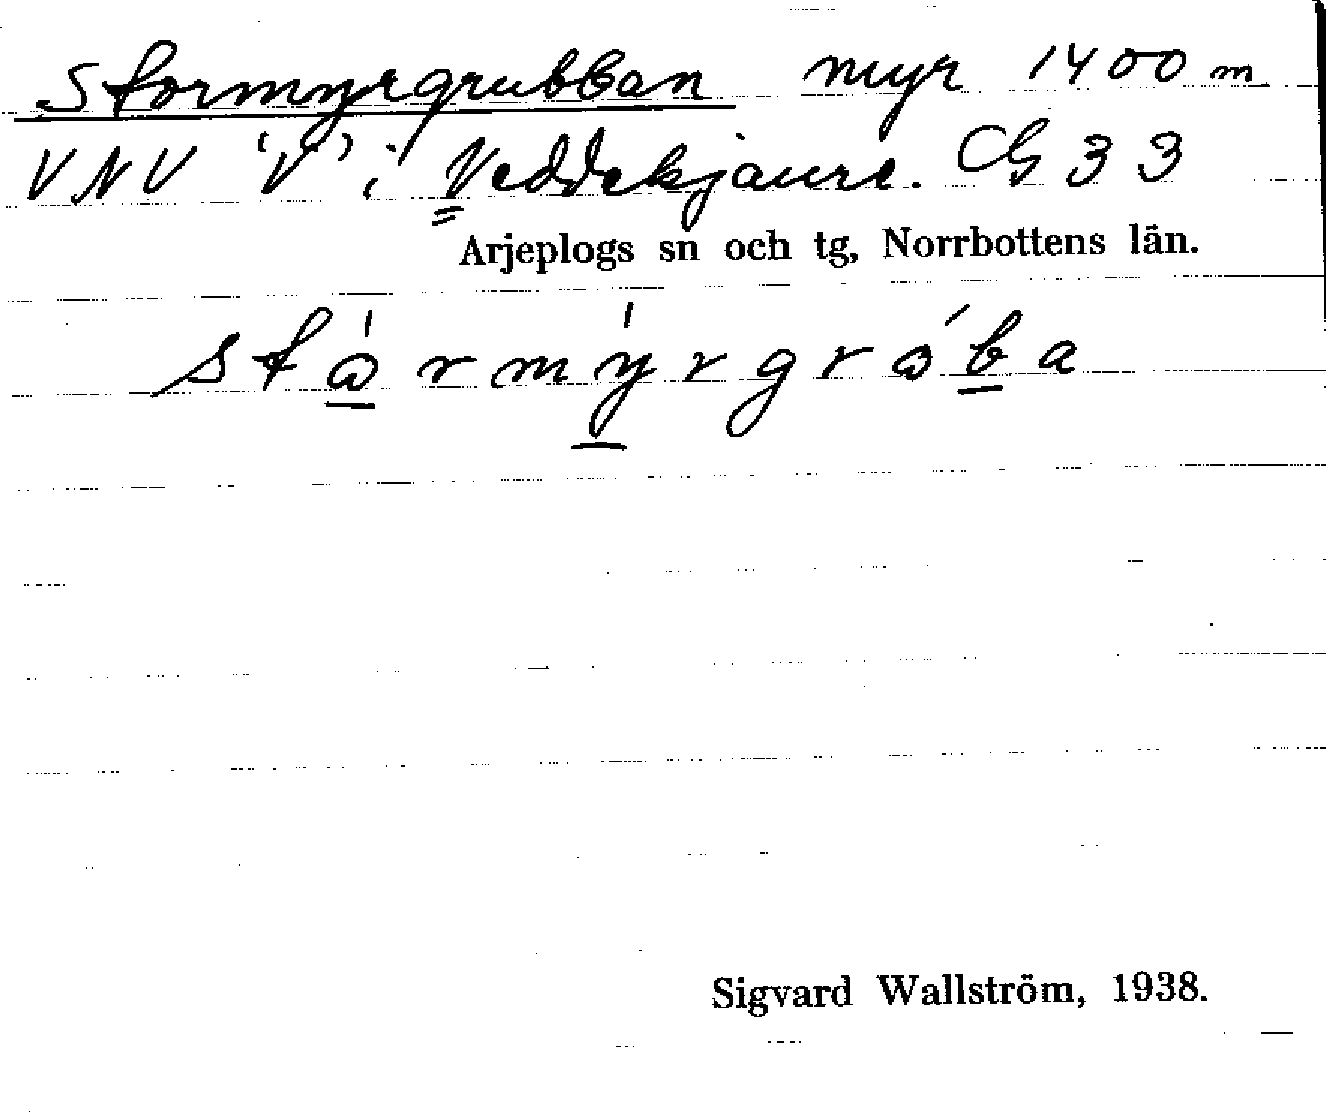 Stormyrgrubban myr 1400 m
VNV 'V' i Veddekjaure. G 33
Arjeplogs sn och tg, Norrbottens län.
stårmýrgråba
Sigvard Wallström, 1938.